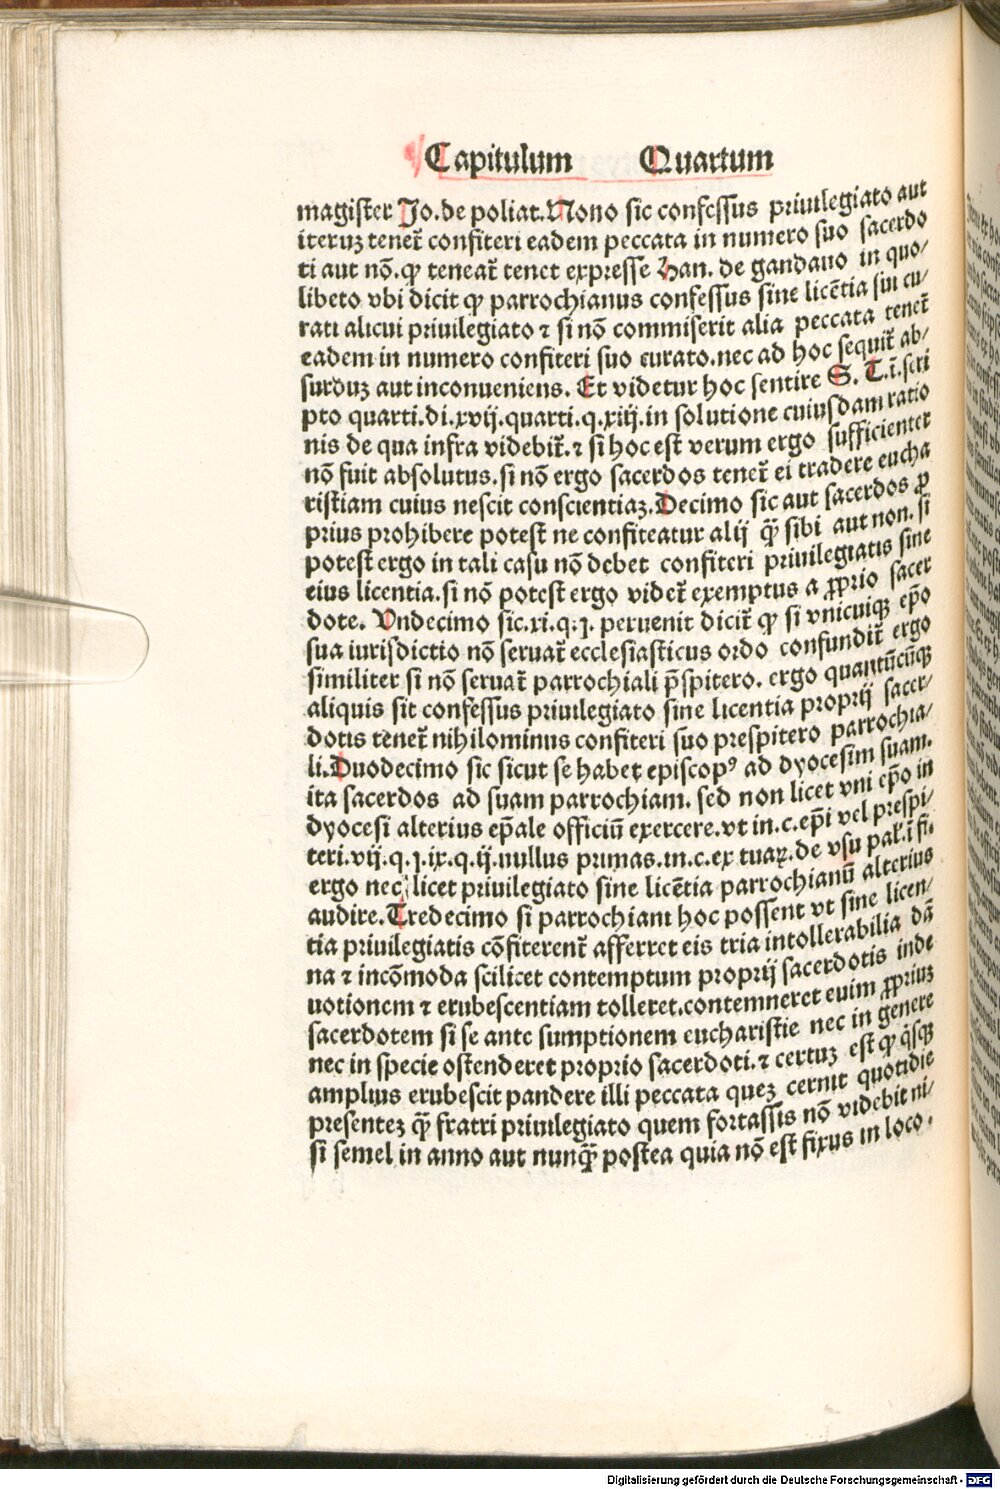 Capitulum Quartum
magister Jo. de poliat. Nono sic confessus priuilegiato aut
iteruʒ teneť confiteri eadem peccata in numero suo sacerdo
ti aut nō. ꝙ teneať tenet expresse Han. de gandauo in quo/
libeto vbi dicit ꝙ parrochianus confessus sine licētia sui cu/
rati alicui priuilegiato ⁊ si nō commiserit alia peccata teneť
eadem in numero confiteri suo curato. nec ad hoc sequiť ab/
surduʒ aut inconueniens. Et videtur hoc sentire S. T. ī. scri
pto quarti. di. xvij. quarti. q. xiij. in solutione cuiusdam ratio
nis de qua infra videbiť. ⁊ si hoc est verum ergo sufficienter
nō fuit absolutus. si nō ergo sacerdos teneť ei tradere eucha
ristiam cuius nescit conscientiaʒ. Decimo sic aut sacerdos ꝓ
prius prohibere potest ne confiteatur alij ꝙ̄ sibi aut non. si
potest ergo in tali casu nō debet confiteri priuilegiatis sine
eius licentia. si nō potest ergo videť exemptus a ꝓprio sacer
dote. Vndecimo sic. xi. q. j. peruenit diciť ꝙ si vnicuiqꝫ ep̄o
sua iurisdictio nō seruať ecclesiasticus ordo confundiť ergo
similiter si nō seruať parrochiali p̄spitero. ergo quantūcūqꝫ
aliquis sit confessus priuilegiato sine licentia proprij sacer/
dotis teneť nihilominus confiteri suo prespitero parrochia/
li. Duodecimo sic sicut se habet episcopꝰ ad dyocesim suam.
ita sacerdos ad suam parrochiam. sed non licet vni ep̄o in
dyocesi alterius ep̄ale officiū exercere. vt in. c. ep̄i vel prespi/
teri. vij. q. j. ix. q. ij. nullus primas. in. c. ex tuaꝝ. de vsu pal. ī fi.
ergo nec licet priuilegiato sine licētia parrochianū alterius
audire. Tredecimo si parrochiani hoc possent vt sine licen/
tia priuilegiatis cōfiterenť afferret eis tria intollerabilia dā
na ⁊ incōmoda scilicet contemptum proprij sacerdotis inde
uotionem ⁊ erubescentiam tolleret. contemneret enim ꝓpriuʒ
sacerdotem si se ante sumptionem eucharistie nec in genere
nec in specie ostenderet proprio sacerdoti. ⁊ certuʒ est ꝙ q̇sqꝫ
amplius erubescit pandere illi peccata queʒ cernit quotidie
presenteʒ ꝙ̄ fratri priuilegiato quem fortassis nō videbit ni/
si semel in anno aut nunꝙ̄ postea quia nō est fixus in loco.
Digitalisierung gefördert durch die Deutsche Forschungsgemeinschaft - DFG